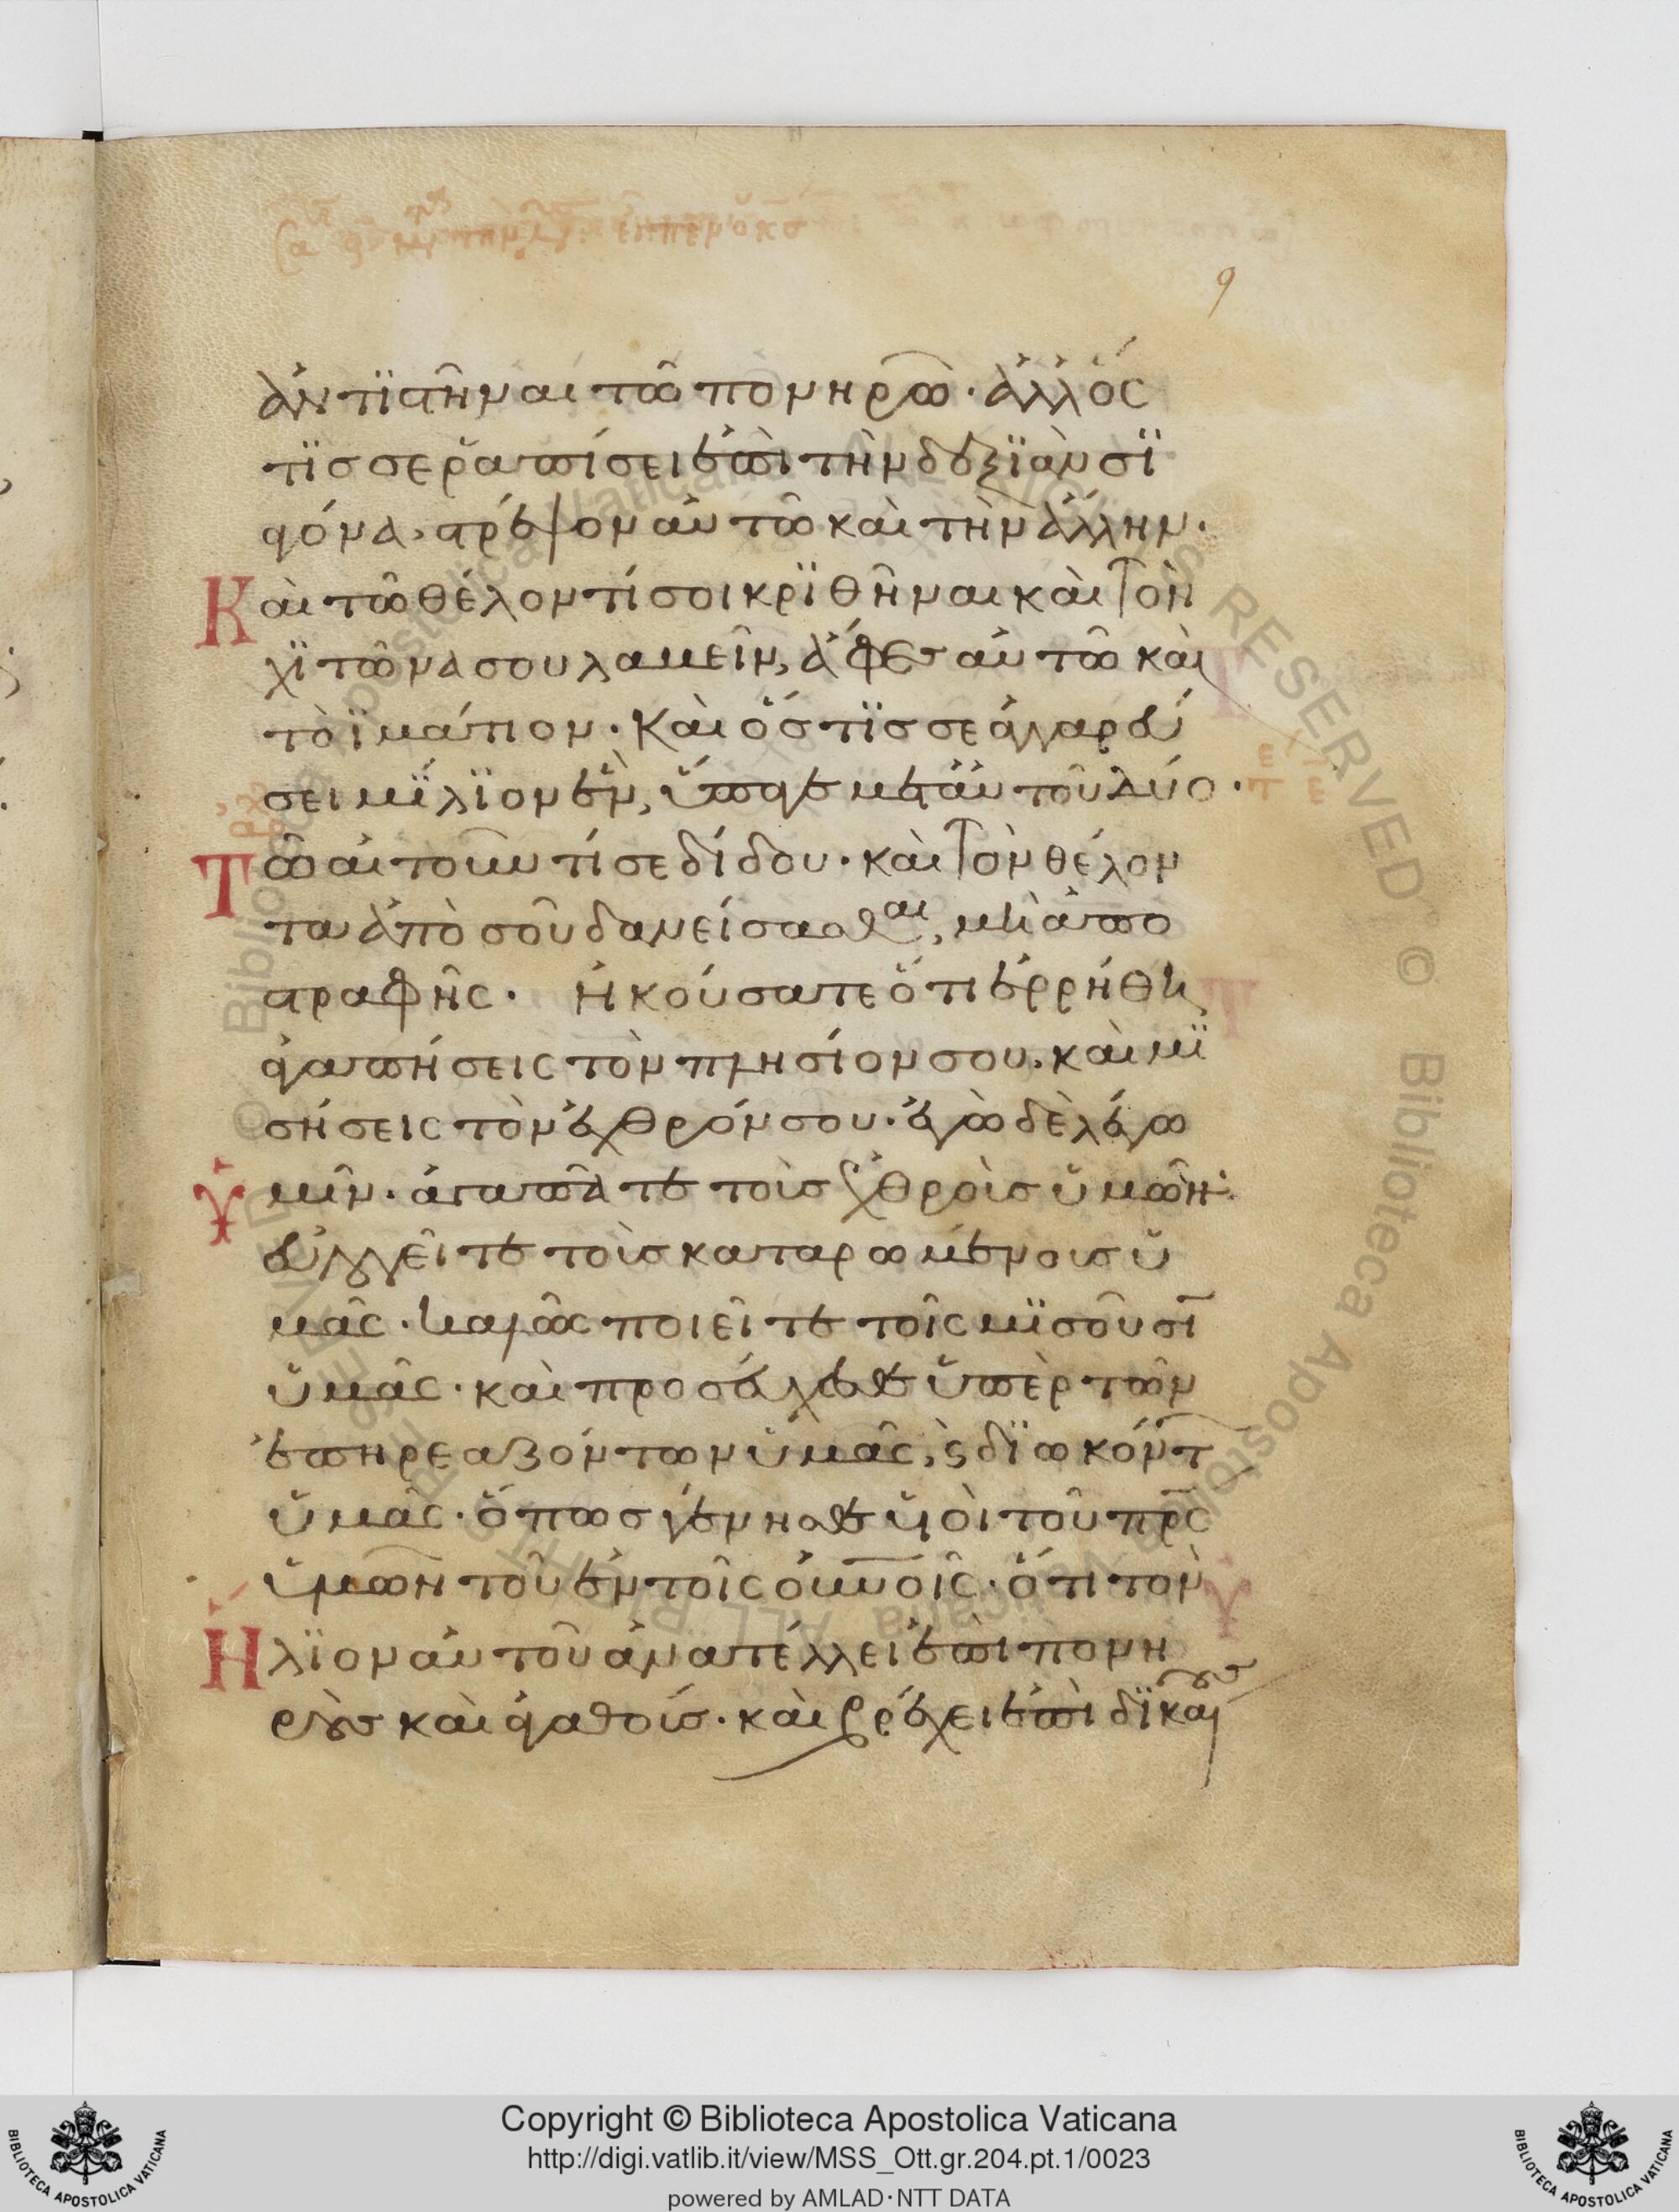 9
ἀντιστῆναι τῶ πονηρῶ · ἀλλ' ὅς
τϊσ σε ῥαπίσει ἐπὶ τὴν δεξϊὰν σϊ
αγόνα, στρέψον αὐτῶ καὶ τὴν ἄλλην.
Καὶ τῶ θέλοντί σοι κρϊθῆναι καὶ τὸν
χϊτῶνα σου λαβεῖν, ἄφεσ αὐτῶ καὶ
τὸ ϊμάτιον · Καὶ ὅστϊσ σε ἀγγαρεύ
σει μΐλϊον ἓν, ὕπαγε μετ' αὐτοῦ δύο ·
Τῶ αἰτοῦντί σε δίδου · καὶ τὸν θέλον
τα ἀπὸ σοῦ δανείσασθαι, μὴ ἀπο
στραφῆς · Ἠκούσατε ὅτι ἐρρήθη
ἀγαπήσεις τὸν πλησίον σου. καὶ μϊ
σήσεις τὸν ἐχθρόν σου · ἐγὼ δὲ λέγω
Ὑμῖν · ἀγαπᾶτε τοὺσ ἐχθροὺσ ὑμῶν·
εὐλογεῖτε τοὺσ καταρωμένουσ ὑ
μᾶς · καλῶς ποιεῖτε τοῖς μϊσοῦσϊ
ὑμᾶς · καὶ προσεύχεσθε ὑπὲρ τῶν
ἐπηρεαζόντων ὑμᾶς, ϗ δϊωκόντ
ὑμᾶς · ὅπωσ γένησθε ὑιοὶ τοῦ πρς
ὑμῶν τοῦ ἐν τοῖς οὐνοῖς · ὅτι τὸν
Ἥλϊον αὐτοῦ ἀνατέλλει ἐπὶ πονη
ροὺσ καὶ ἀγαθούσ · καὶ βρέχει ἐπὶ δϊκαί
Copyright © Biblioteca Apostolica Vaticana
http://digi.vatlib.it/view/MSS_Ott.gr.204.pt.1/0023
powered by AMLAD·NTT DATA
BIBLIOTECA APOSTOLICA VATICANA
BIBLIOTECA APOSTOLICA VATICANA